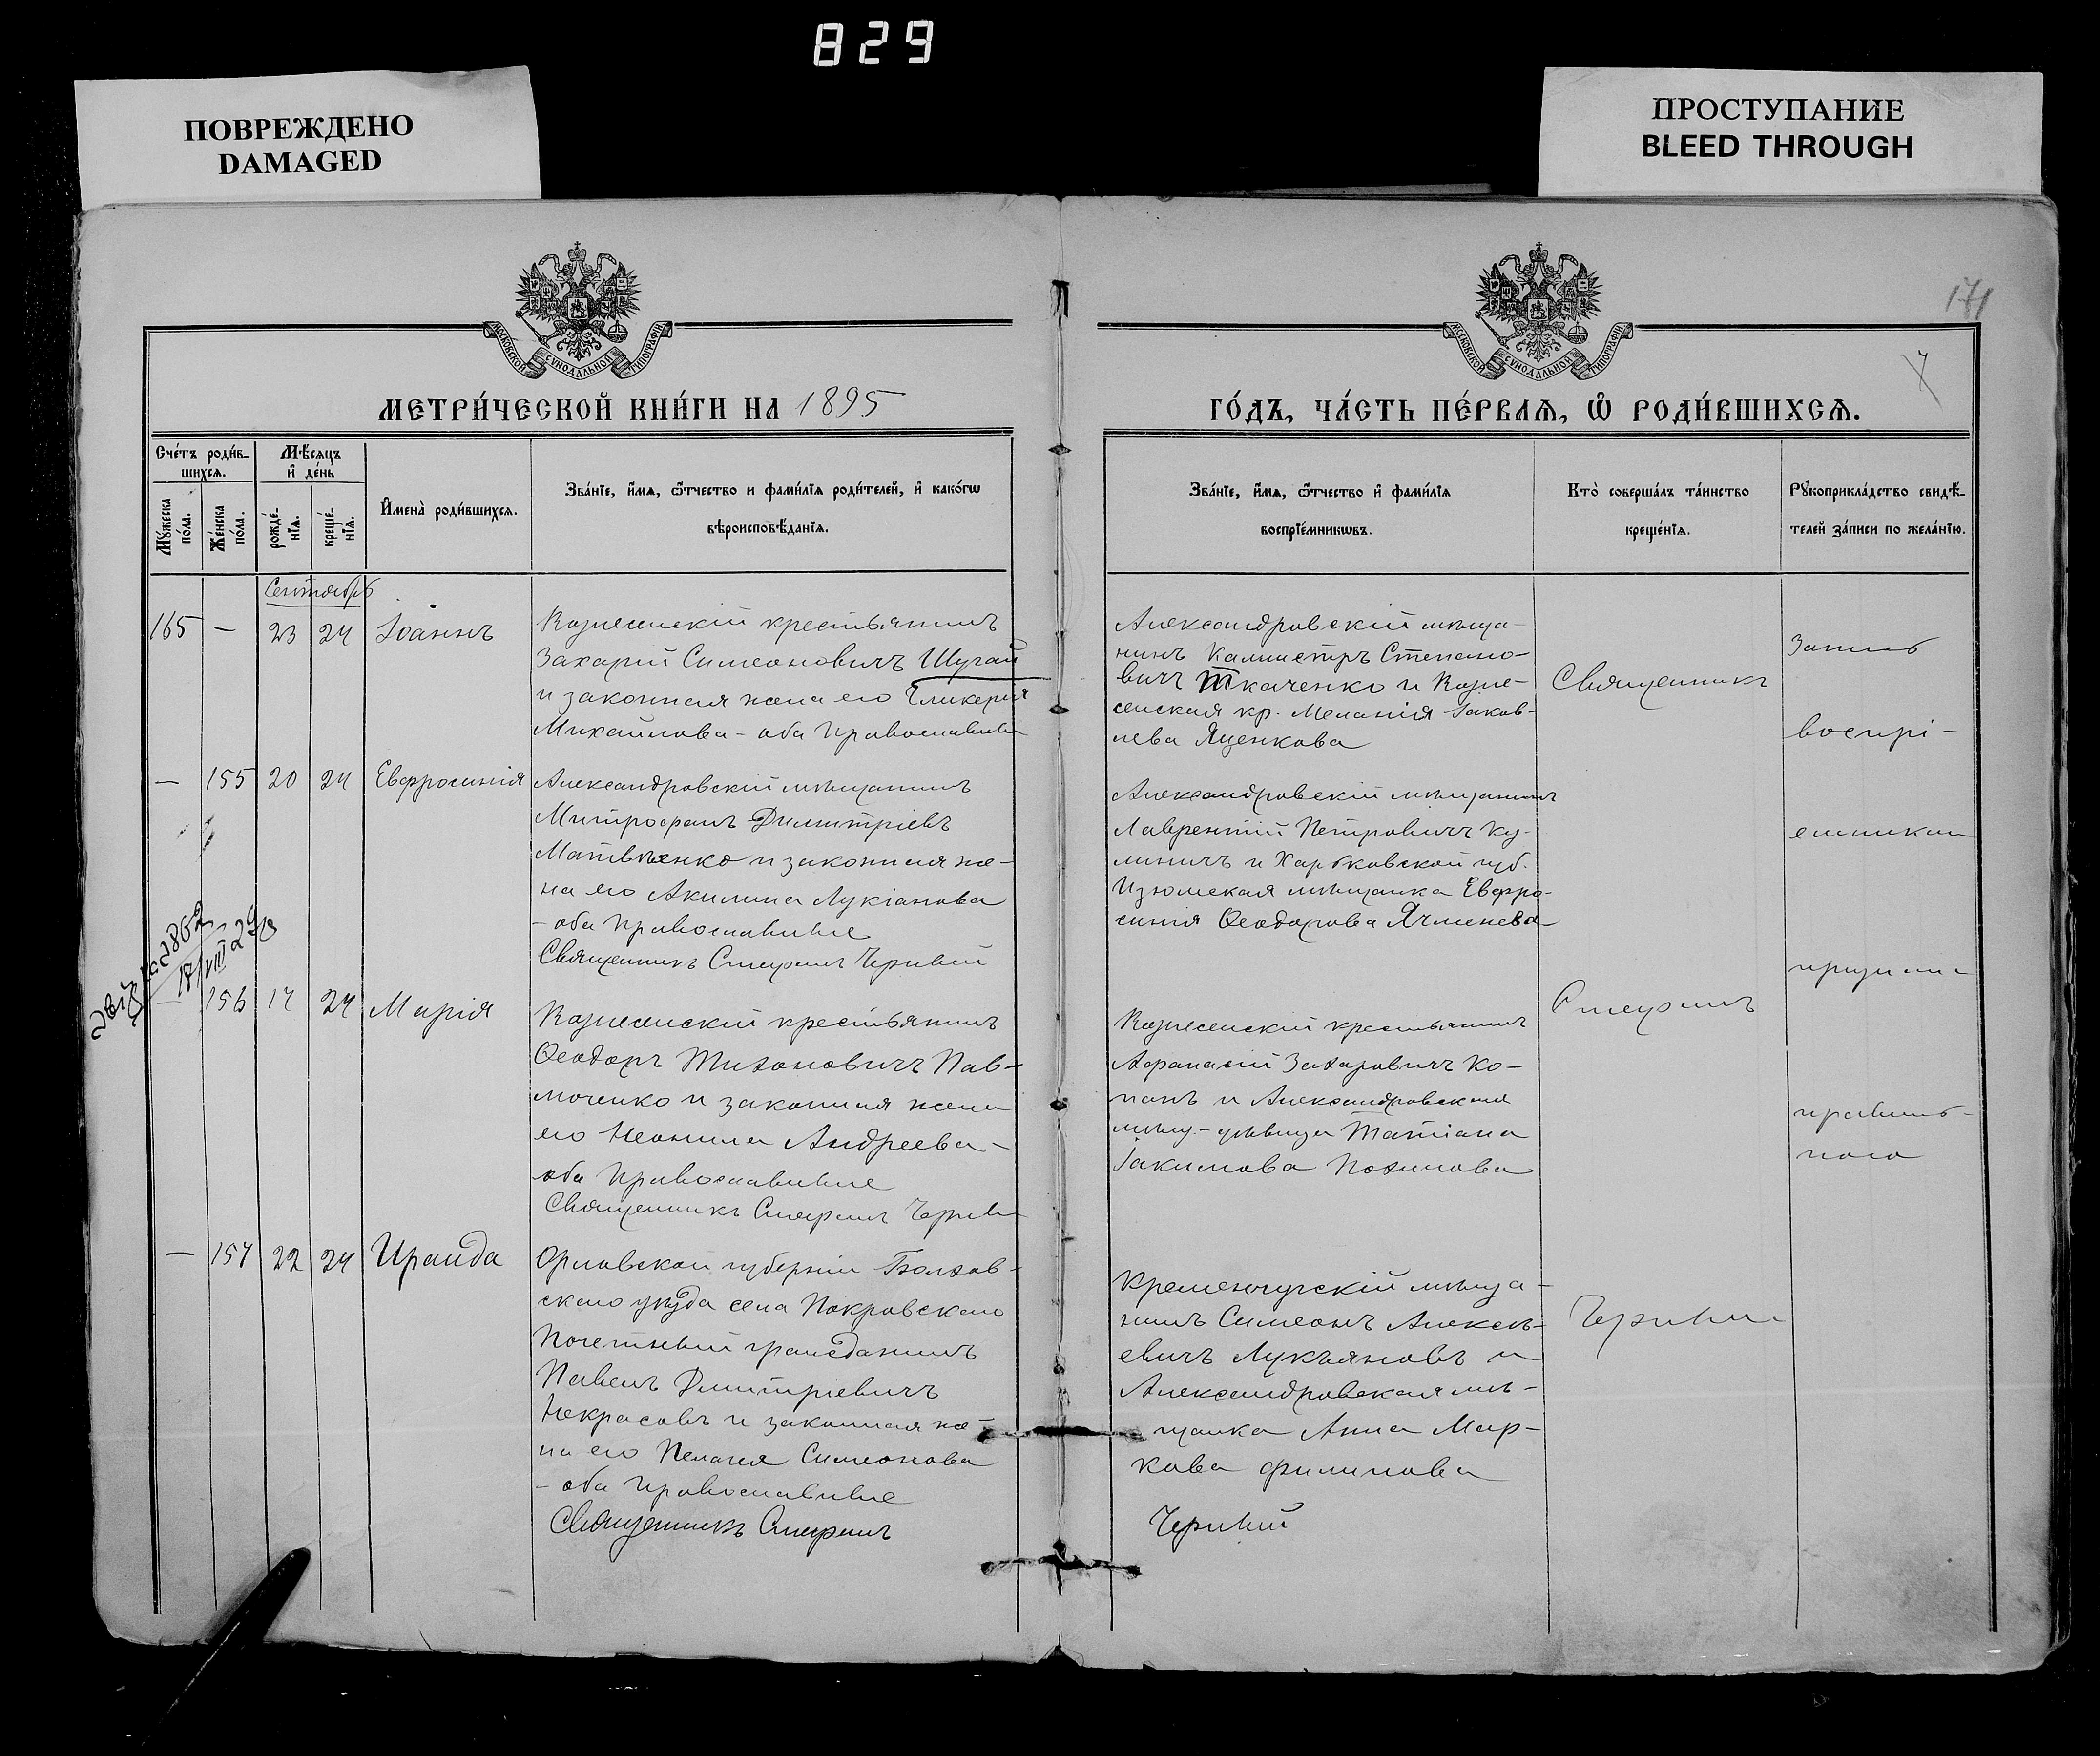 829
ПОВРЕЖДЕНО
DAMAGED
ПРОСТУПАНИЕ
BLEED THROUGH
171
МОСКОВСКОЙ СѴНОДАЛЬНОЙ ТИПОГРАФІИ
МОСКОВСКОЙ СѴНОДАЛЬНОЙ ТИПОГРАФІИ
МЕТРИ́ЧЕСКОЙ КНИ́ГИ НА 1895
ГО́ДЪ, ЧА́СТЬ ПЕ́РВАѦ, Ѽ РОДИ́ВШИХСѦ.
Сче́тъ роди́в-
шихсѧ.
Мꙋ́жеска
по́ла.
Же́нска
по́ла.
Мѣ́сѧцъ
и҆ де́нь
рожде́-
нїѧ.
креще́-
нїѧ.
И҆мена̀ роди́вшихсѧ.
Зва́нїе, и҆́мѧ, ѻ҆́тчество и фами́лїѧ роди́телей, и҆ како́гѡ
вѣроисповѣ́данїѧ.
Зва́нїе, и҆́мѧ, ѻ҆́тчество и҆ фами́лїѧ
воспрїе́мникѡвъ.
Кто̀ соверша́лъ та́инство
креще́нїѧ.
Рꙋкоприкла́дство свидѣ́-
телей за́писи по жела́нїю.
Сентябрь
165 — 23 24 Іоаннъ
Вознесенскій крестьянинъ
Захарій Симеоновичъ Шугай
и законная жена его Гликерія
Михайлова - оба Православные
Александровскій мѣща-
нинъ Каллистръ Степано-
вичъ Ткаченко и Возне-
сенская кр. Меланія Іаков-
лева Яценкова
— 155 20 24 Евфросинія
Александровскій мѣщанинъ
Митрофанъ Димитріевъ
Матвѣенко и законная же-
на его Акилина Лукіанова
- оба Православные
Священникъ Стефанъ Черный
Александровскій мѣщанинъ
Лаврентій Петровичъ Ку-
линичъ и Харьковской губ.
Изюмская мѣщанка Евфро-
синія Ѳеодорова Ячменева
17/VIII 29
— 156 17 24 Марія
Вознесенскій крестьянинъ
Ѳеодоръ Тихоновичъ Пав-
люченко и законная жена
его Неонила Андреева -
оба Православные
Священникъ Стефанъ Черный
Вознесенскій крестьянинъ
Афанасій Захаровичъ Ко-
панъ и Александровская
мѣщ. - дѣвица Татіана
Іакимова Похилова
— 157 22 24 Ираида
Орловской губерніи Болхов-
скаго уѣзда села Покровскаго
Почетный гражданинъ
Павелъ Дмитріевичъ
Некрасовъ и законная же-
на его Пелагея Симеонова
- оба Православные
Священникъ Стефанъ
Кременчугскій мѣща-
нинъ Симеонъ Алексѣ-
евичъ Лукьяновъ и
Александровская мѣ-
щанка Анна Мар-
кова Филипова
Черный
Священникъ
Стефанъ
Черный
Запись
воспрі-
емники
признали
правиль-
ною